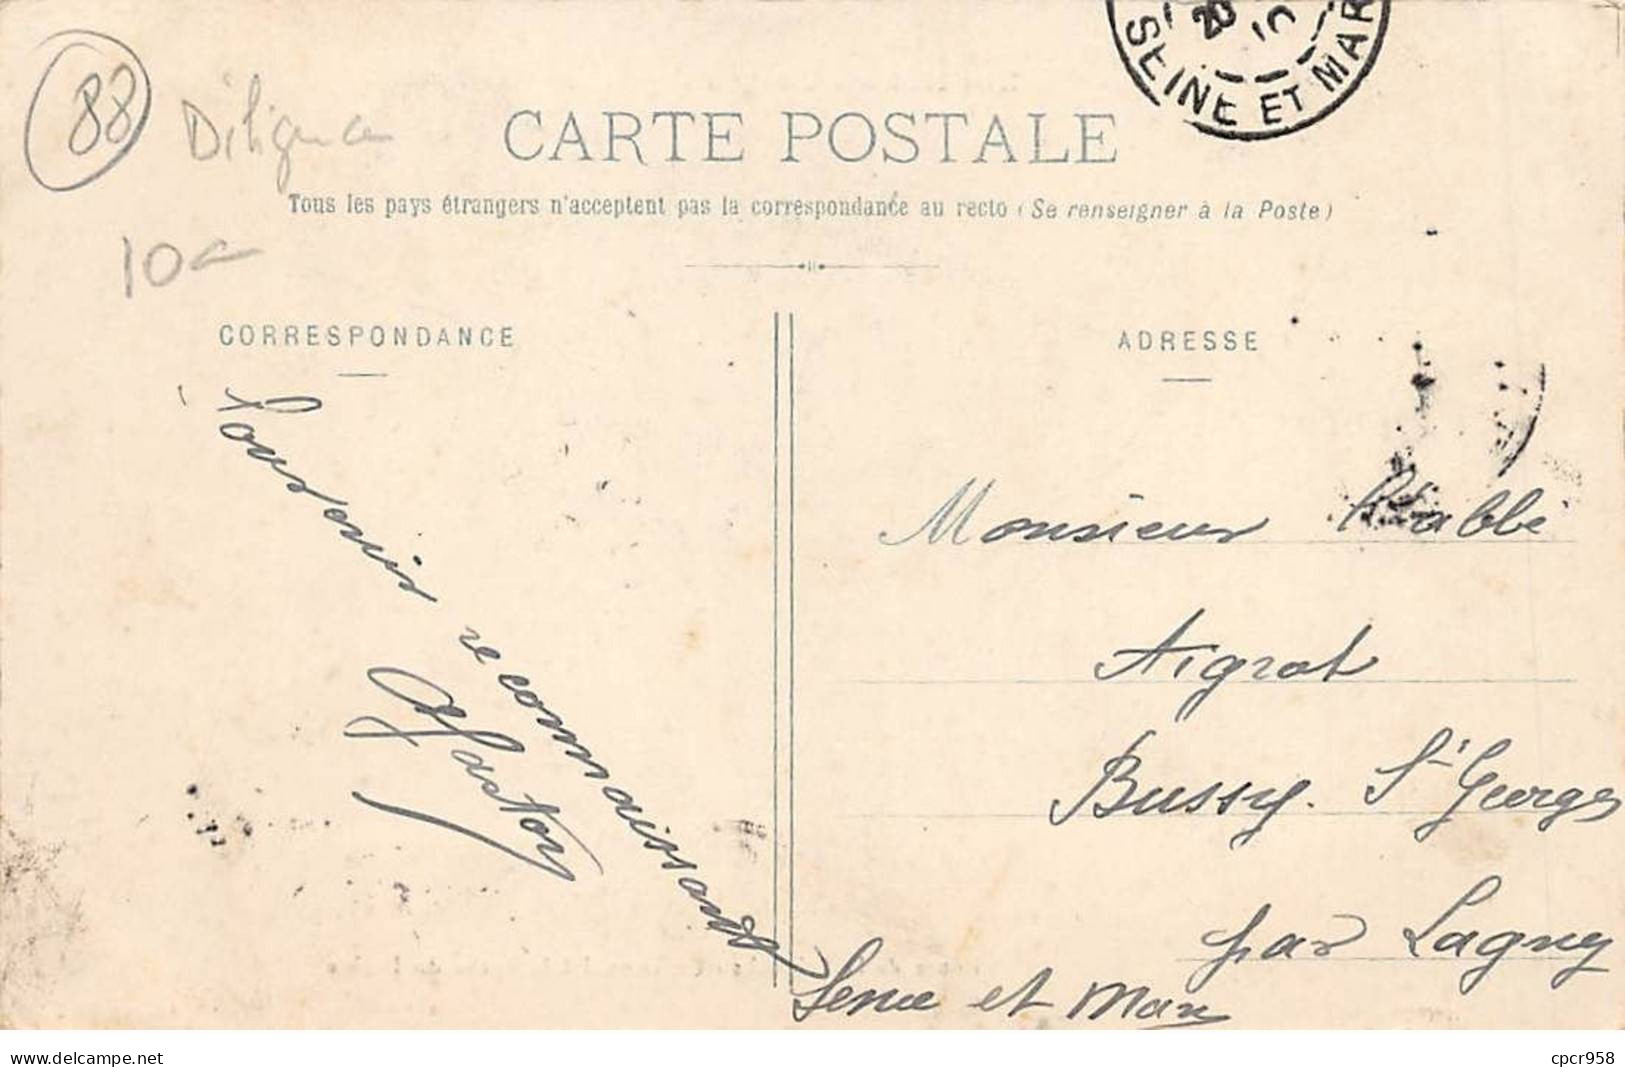 88
Diligence
10€
SEINE ET MAR
CARTE POSTALE
Tous les pays étrangers n'acceptent pas la correspondance au recto (Se renseigner à la Poste)
CORRESPONDANCE
Souvenir reconnaissant
ADRESSE
Monsieur l'abbé
Aigrot
Bussy. St Georges
par Lagny
Seine et Marne
cpcr958
www.delcampe.net